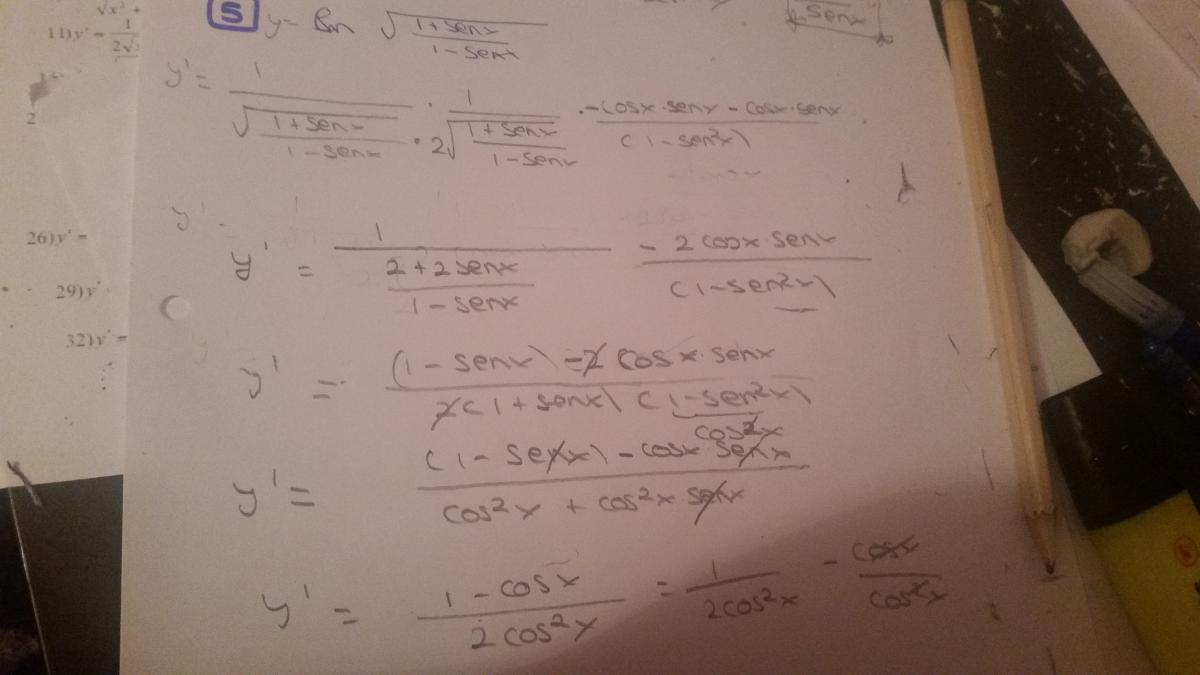 11) y' = 1/2√
5 y = ln √((1+senx)/(1-senx))
senx
y' = 1/√((1+senx)/(1-senx)) · 1/(2√((1+senx)/(1-senx))) · (-cosx·senx - cosx·senx)/(1-sen²x)
26) y' =
y' = 1/((2+2senx)/(1-senx)) (-2cosx·senx)/(1-sen²x)
29) y'
32) y' =
y' = ((1-senx) -2cosx·senx)/(2(1+senx)(1-sen²x))
cos²x
y' = ((1-senx) - cosx senx)/(cos²x + cos²x senx)
y' = (1-cosx)/(2cos²x) = 1/(2cos²x) - cosx/cos²x